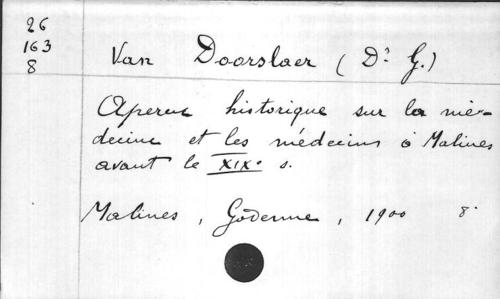 26
163
8
Van Doorslaer (Dr G.)
Aperçu historique sur la mé-
decine et les médecins à Malines
avant le XIXe s.
Malines, Godenne, 1900 8°